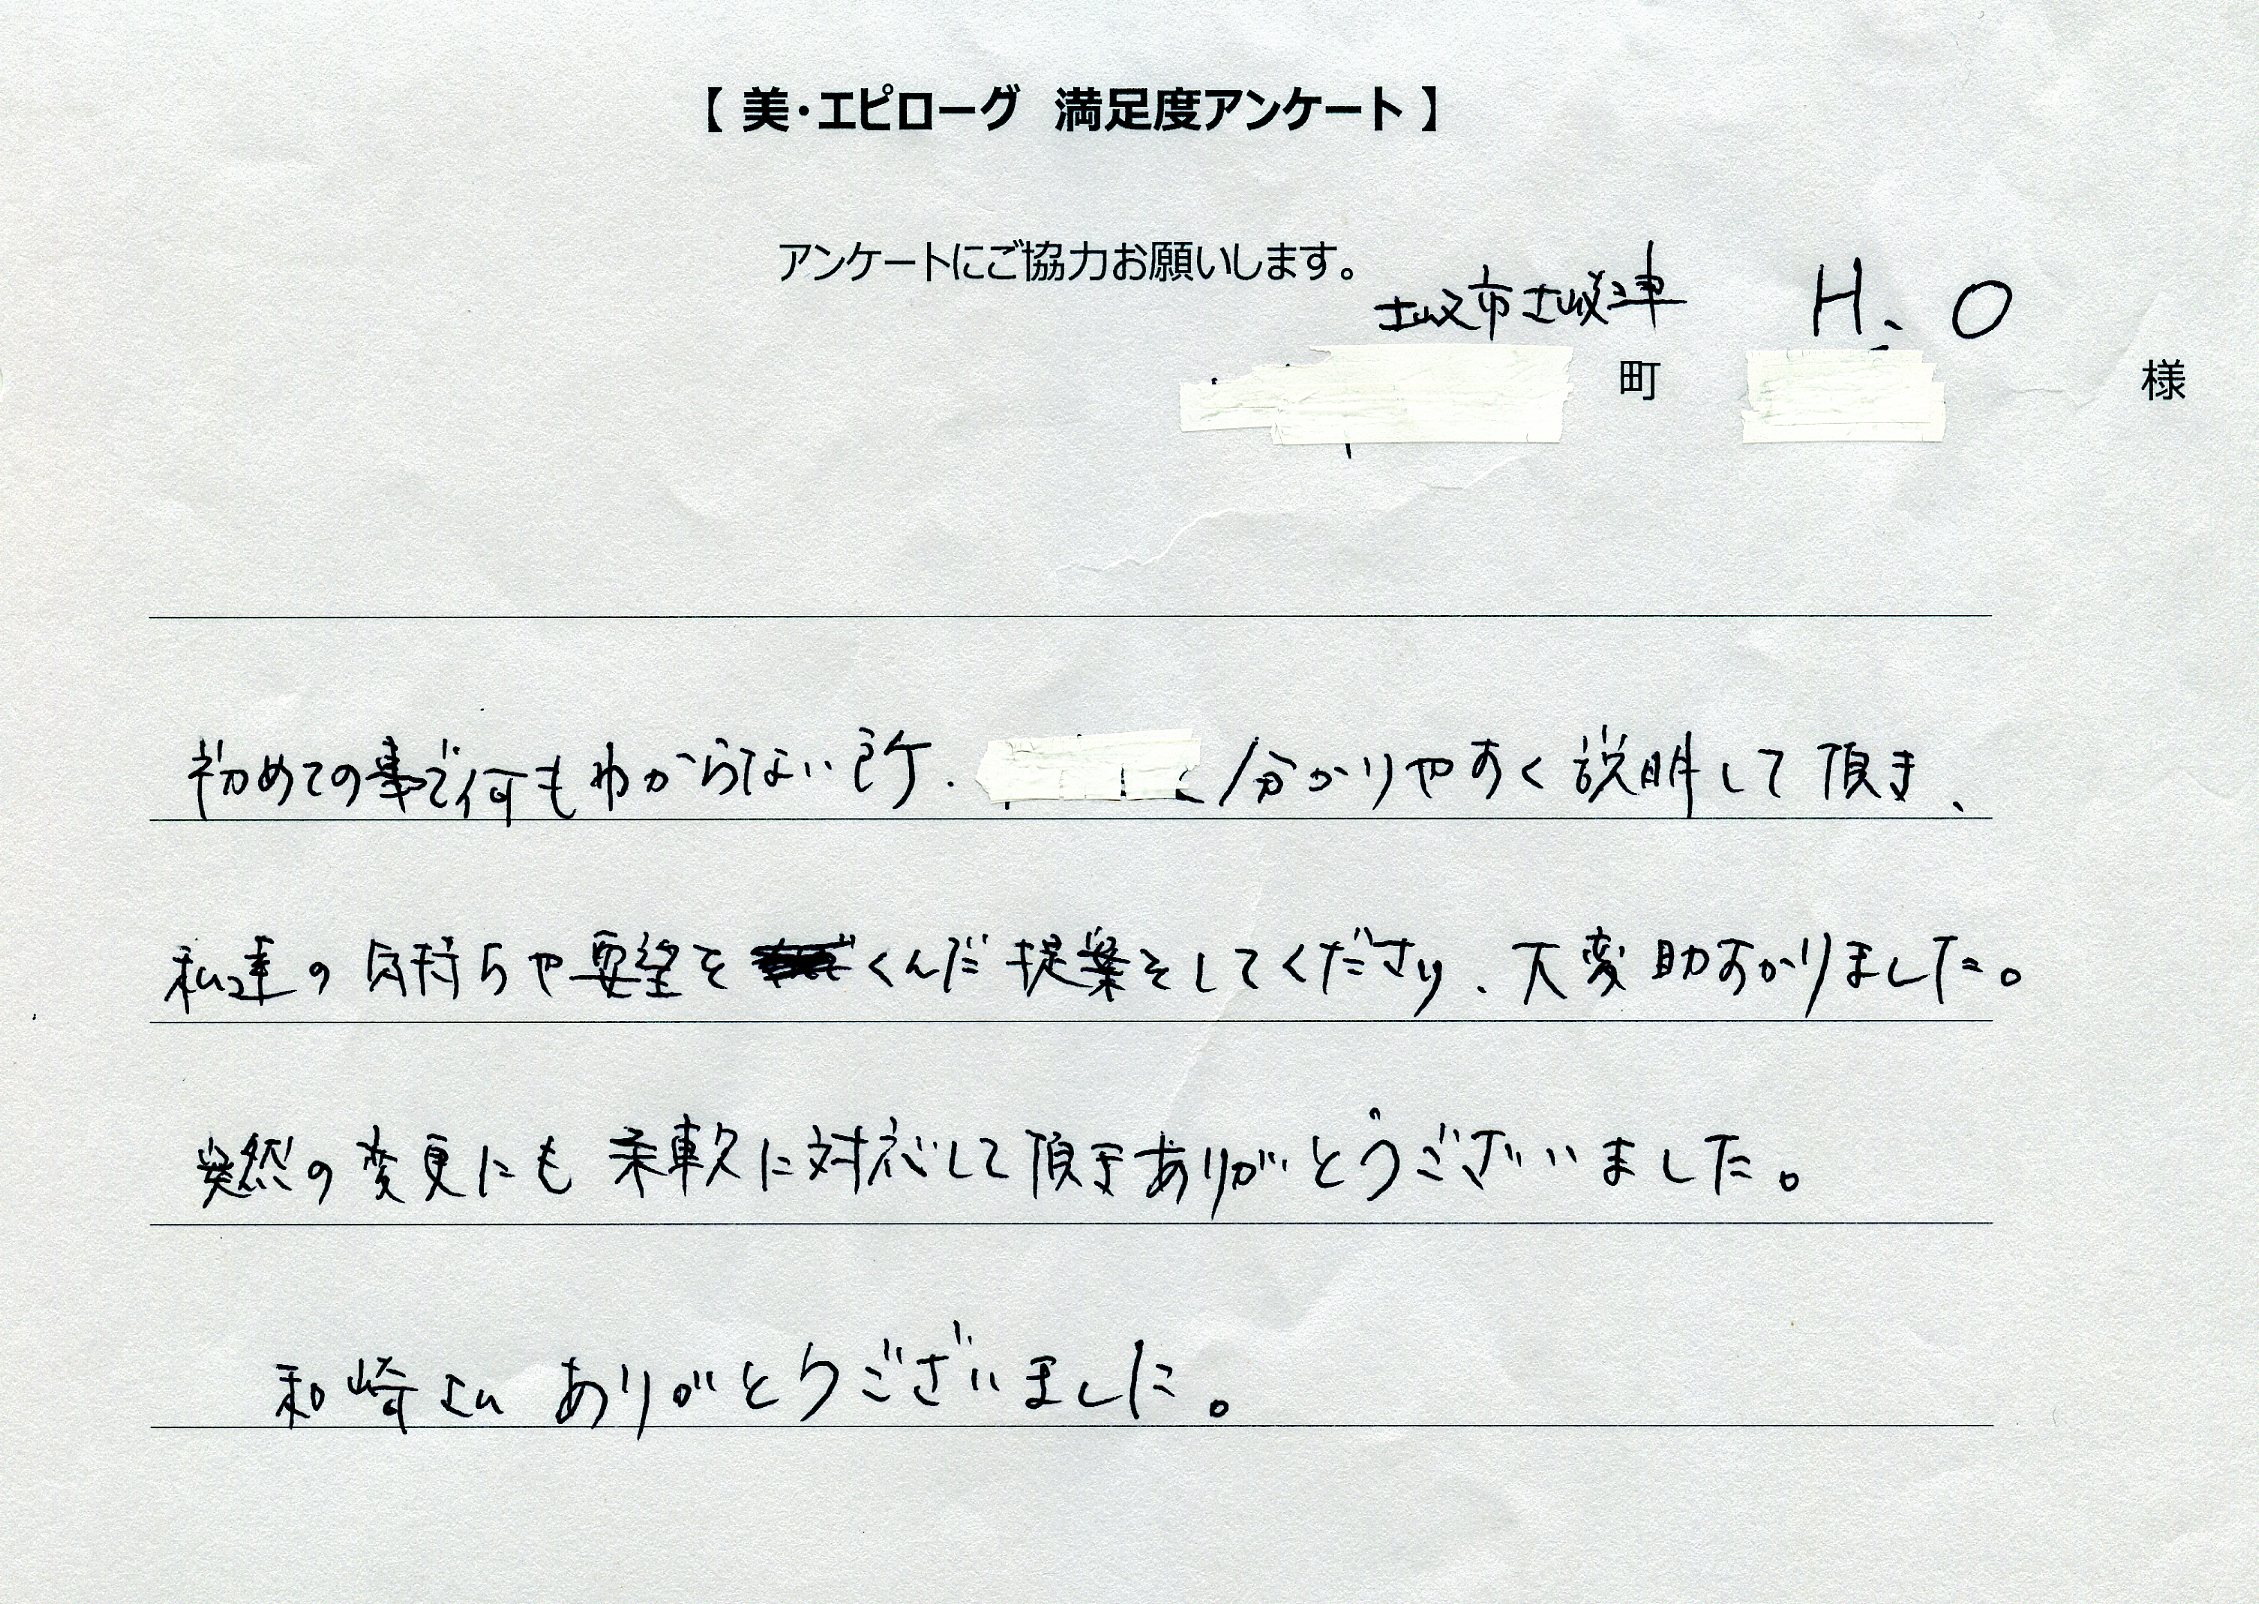 【 美・エピローグ 満足度アンケート 】
アンケートにご協力お願いします。
市 H.O
町 様
初めての事で何もわからない所、分かりやすく説明して頂き、
私達の気持ちや要望をくんだ提案をしてくださり、大変助かりました。
突然の変更にも柔軟に対応して頂きありがとうございました。
和崎さん ありがとうございました。